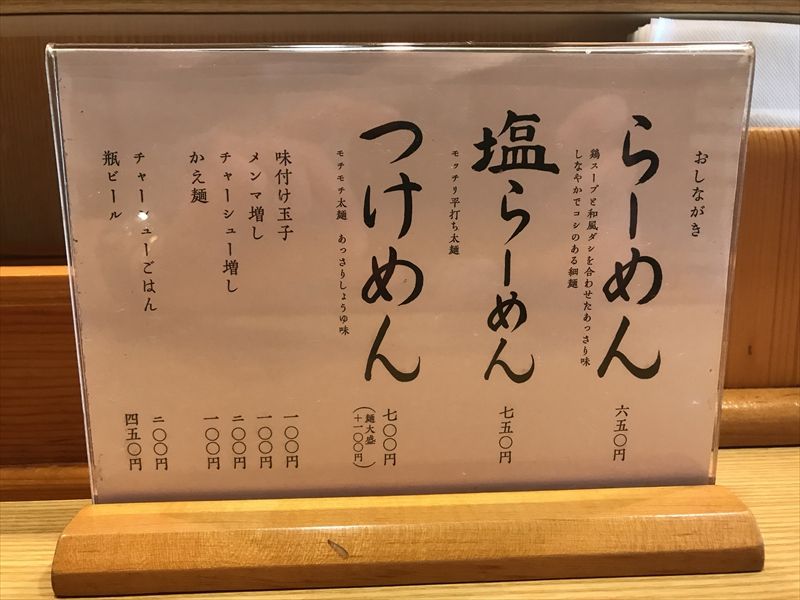 おしながき
らーめん
鶏スープと和風ダシを合わせたあっさり味
しなやかでコシのある細麺
六五〇円
塩らーめん
モッチリ平打ち太麺
七五〇円
つけめん
モチモチ太麺 あっさりしょうゆ味
七〇〇円
麺大盛
(+一〇〇円)
味付け玉子
一〇〇円
メンマ増し
一〇〇円
チャーシュー増し
二〇〇円
かえ麺
一〇〇円
チャーシューごはん
二〇〇円
瓶ビール
四五〇円